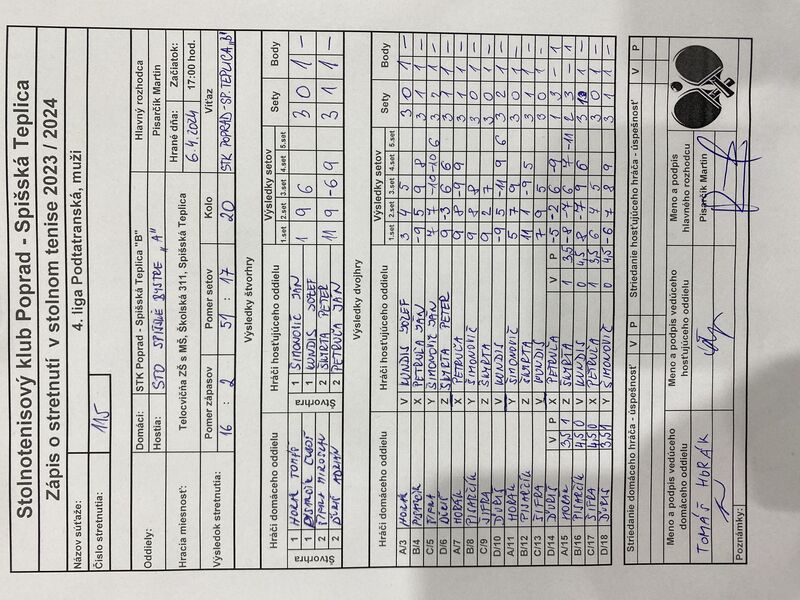 Stolnotenisový klub Poprad - Spišská Teplica
Zápis o stretnutí v stolnom tenise 2023 / 2024
Názov súťaže: 4. liga Podtatranská, muži
Číslo stretnutia: 115
Oddiely: Domáci: STK Poprad - Spišská Teplica "B" Hlavný rozhodca
Hostia: STO SPIŠSKÉ BYSTRÉ "A" Pisarčík Martin
Hracia miesnosť: Telocvičňa ZŠ s MŠ, Školská 311, Spišská Teplica Hrané dňa: Začiatok:
6.4.2024 17:00 hod.
Výsledok stretnutia: Pomer zápasov Pomer setov Kolo Víťaz
16 : 2 51 : 17 20 STK POPRAD-SP. TEPLICA "B"
Výsledky štvorhry
Hráči domáceho oddielu Hráči hosťujúceho oddielu Výsledky setov Sety Body
1.set 2.set 3.set 4.set 5.set
Štvorhra 1 HORÁK TOMÁŠ Štvorhra 1 ŠIMONOVIČ JÁN 1 9 6 3 0 1 -
1 PISARČÍK 1 KUNDIS JOZEF
2 ŠIFRA MIROSLAV 2 ŠKVRTA PETER 11 9 -6 9 3 1 1 -
2 ĎURIŠ ADRIÁN 2 PETRUČA JÁN
Výsledky dvojhry
Hráči domáceho oddielu Hráči hosťujúceho oddielu Výsledky setov Sety Body
1.set 2.set 3.set 4.set 5.set
A/3 HORÁK V KUNDIS JOZEF 3 4 5 3 0 1 -
B/4 PISARČÍK X PETRUČA JÁN -9 5 9 8 3 1 1 -
C/5 ŠIFRA Y ŠIMONOVIČ JÁN 4 7 -10 -10 6 3 2 1 -
D/6 ĎURIŠ Z ŠKVRTA PETER 9 -3 6 6 3 1 1 -
A/7 HORÁK X PETRUČA 9 8 -9 9 3 1 1 -
B/8 PISARČÍK Y ŠIMONOVIČ 8 9 8 3 0 1 -
C/9 ŠIFRA Z ŠKVRTA 9 2 7 3 0 1 -
D/10 ĎURIŠ V KUNDIS -9 5 -11 9 6 3 2 1 -
A/11 HORÁK Y ŠIMONOVIČ 5 7 9 3 0 1 -
B/12 PISARČÍK Z ŠKVRTA 11 1 -9 5 3 1 1 -
C/13 ŠIFRA V KUNDIS 7 9 5 3 0 1 -
D/14 ĎURIŠ V P X PETRUČA V P -5 -2 6 -9 1 3 - 1
A/15 HORÁK 3,5 1 Z ŠKVRTA 1 3,5 -8 -7 6 7 -11 2 3 - 1
B/16 PISARČÍK 4,5 0 V KUNDIS 0 4,5 8 -7 9 6 3 1 1 -
C/17 ŠIFRA 4,5 0 X PETRUČA 1 3,5 6 4 5 3 0 1 -
D/18 ĎURIŠ 3,5 1 Y ŠIMONOVIČ 0 4,5 -6 7 8 9 3 1 1 -
Striedanie domáceho hráča - úspešnosť V P Striedanie hosťujúceho hráča - úspešnosť V P
Meno a podpis vedúceho domáceho oddielu Meno a podpis vedúceho hosťujúceho oddielu Meno a podpis hlavného rozhodcu
TOMÁŠ HORÁK Pisarčík Martin
Poznámky: